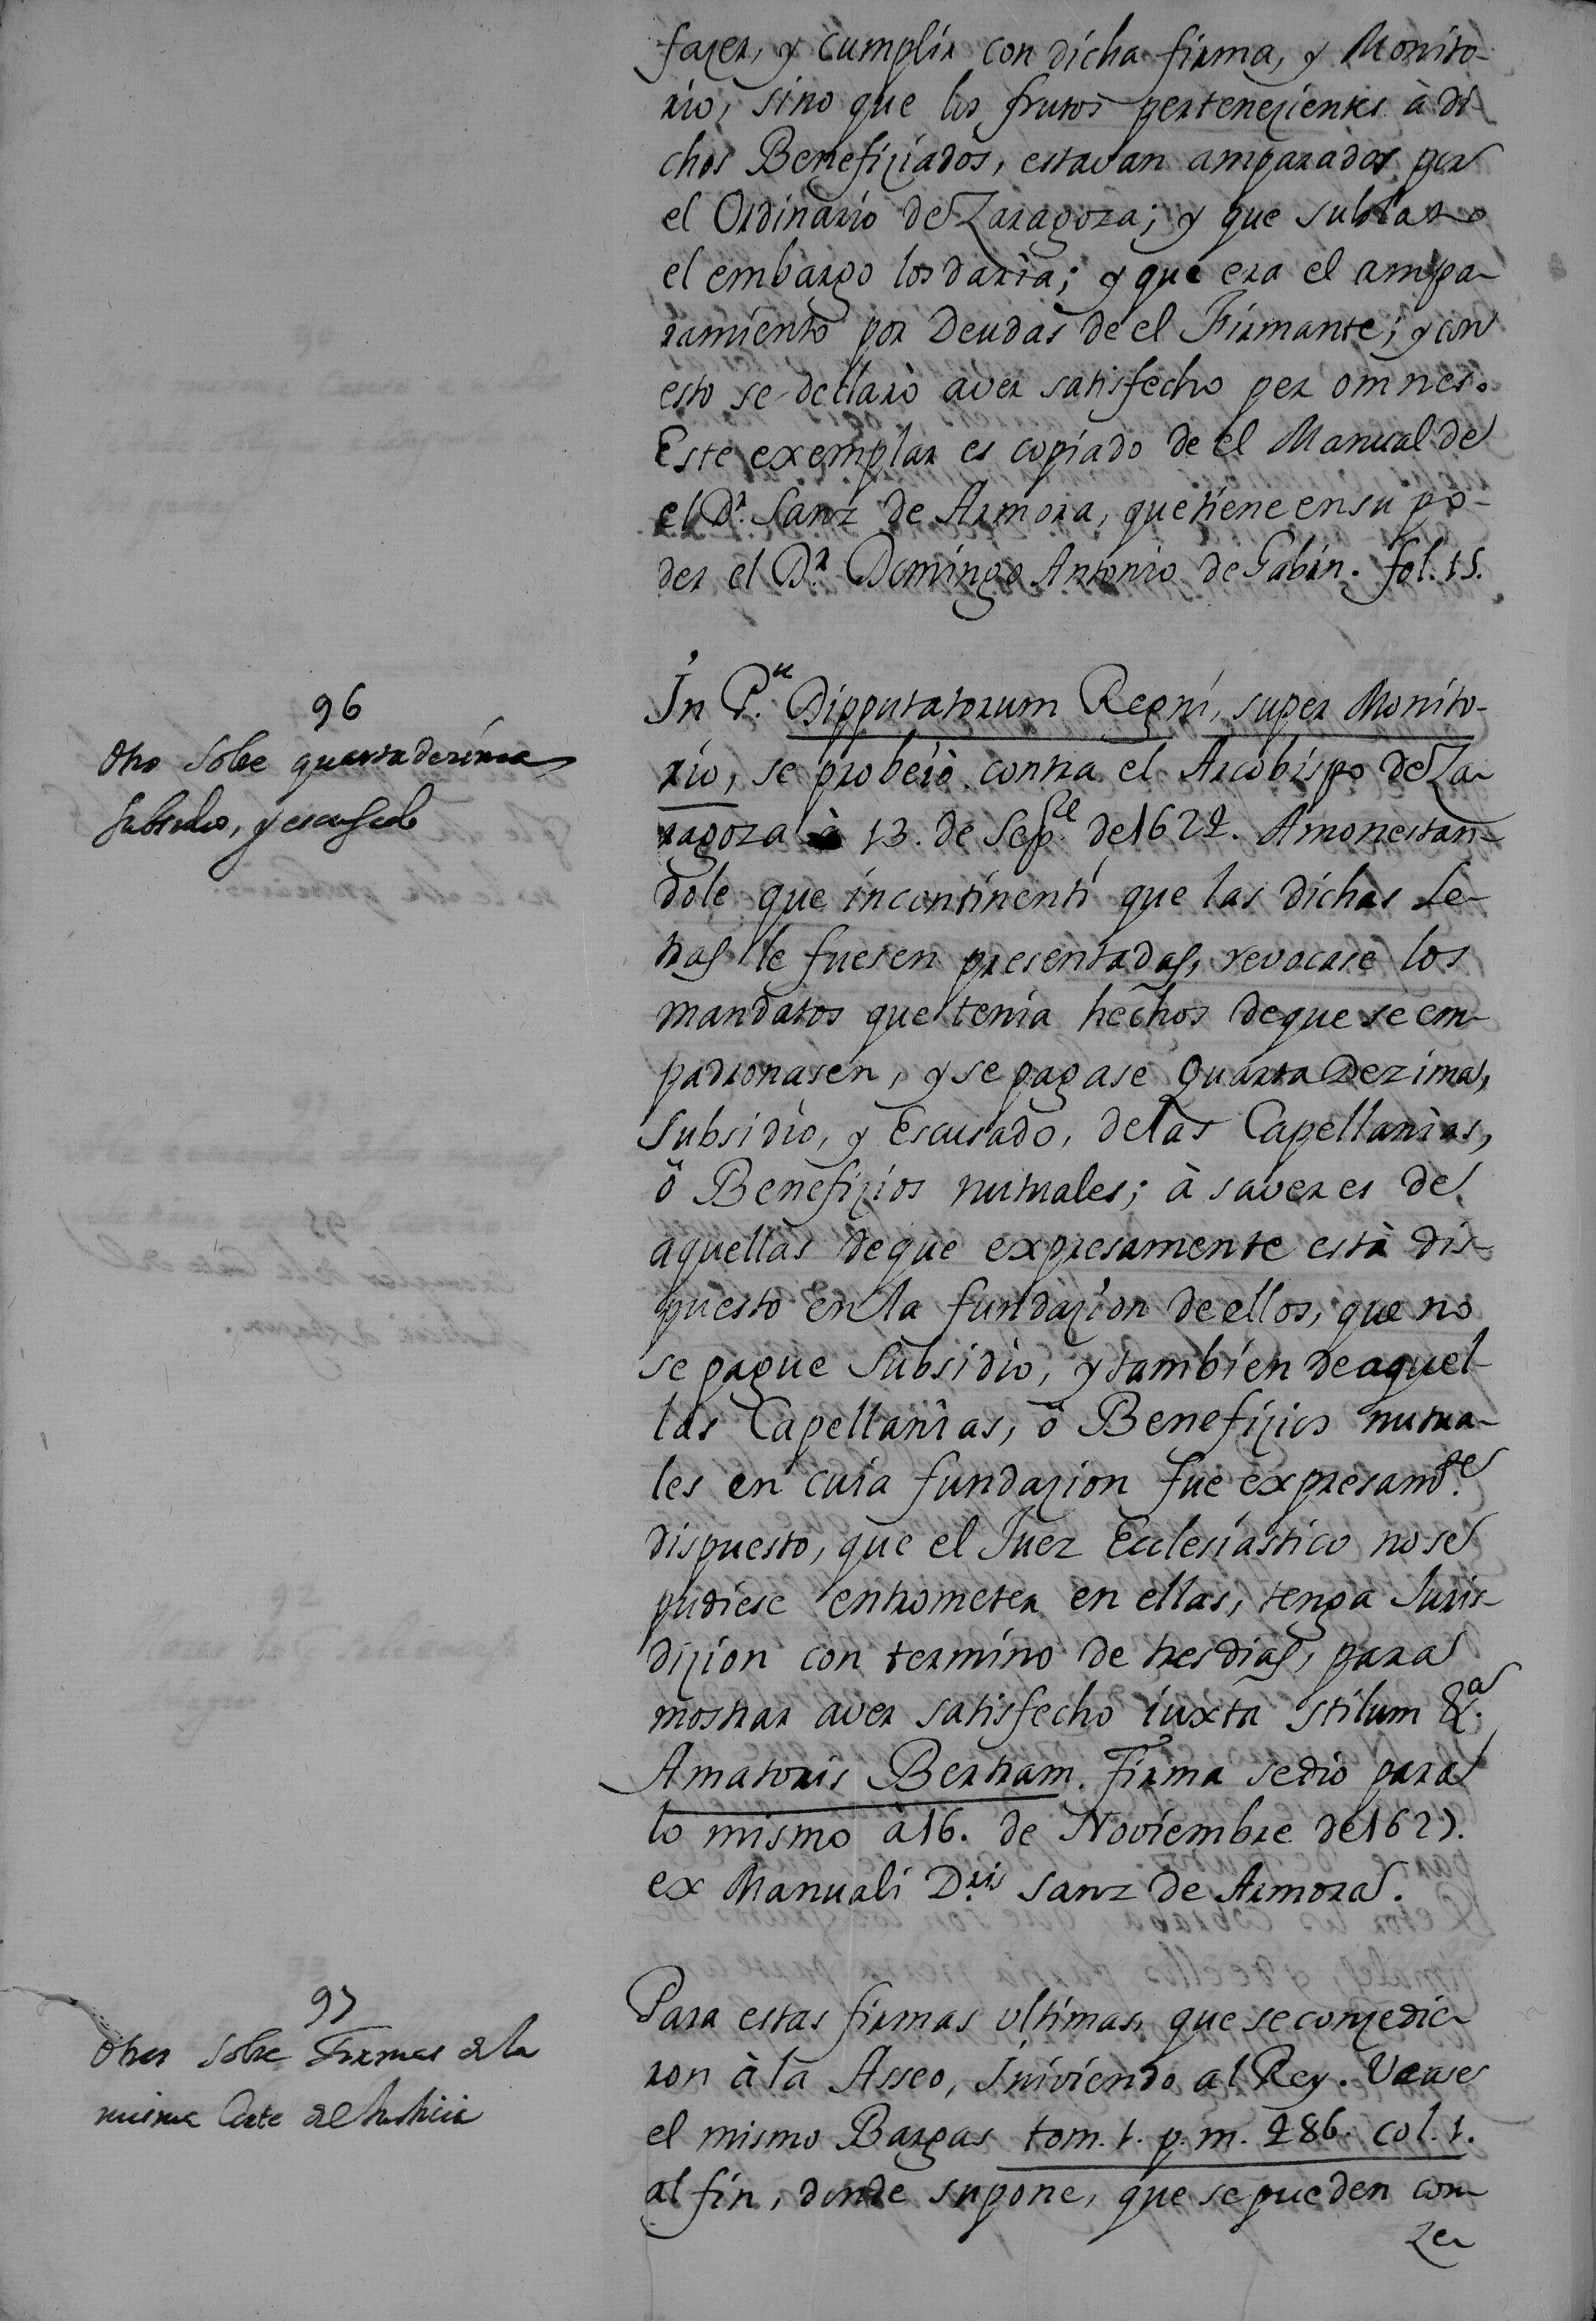 fazer, y cumplir con dicha firma, y Monito-
rio, sino que los frutos pertenezientes à di-
chos Benefiziados, estavan amparados por
el Ordinario de Zaragoza; y que sublato
el embargo los daria; y que era el ampa-
ramiento por Deudas de el Firmante; y con
esto se declarò aver satisfecho per omnes.
Este exemplar es copiado de el Manual de
el Dr. Sanz de Armora, que tiene en su po-
der el Dr. Domingo Antonio de Gabin. fol. 15.
96
Otro sobre quarta dezima
subsidio, y escusado
In P.u Dipputatorum Regni, super Monito-
rio, se probeiò contra el Arcobispo de Za-
ragoza à 13. de Sepre. de 1622. Amonestan-
dole que incontinenti que las dichas Le-
tras le fuesen presentadas, revocase los
mandatos que tenia hechos de que se em-
padronasen, y se pagase Quarta Dezima,
Subsidio, y Escusado, de las Capellanias,
ò Benefizios nutuales; à saver es de
aquellas de que expresamente està dis-
puesto en la fundazion de ellos, que no
se pague Subsidio, y tambien de aquel-
las Capellanias, ò Benefizios nutua-
les en cuia fundazion fue expresamte.
dispuesto, que el Juez Ecclesiastico no se
pudiese entrometer en ellas, tenga Juris-
dizion con termino de tres dias, para
mostrar aver satisfecho iuxta stilum &a.
Amatoris Bertram. Firma se diò para
lo mismo à 16. de Noviembre de 1627.
ex Manuali Dris. Sanz de Armora.
97
Otras sobre Firmas de la
misma Corte del Justicia
Para estas firmas ultimas, que se conzedie-
ron à la Asseo, Iniviendo al Rey. Vease
el mismo Bargas tom. 1. p. m. 286. col. 1.
al fin, donde supone, que se pueden con-
ze-